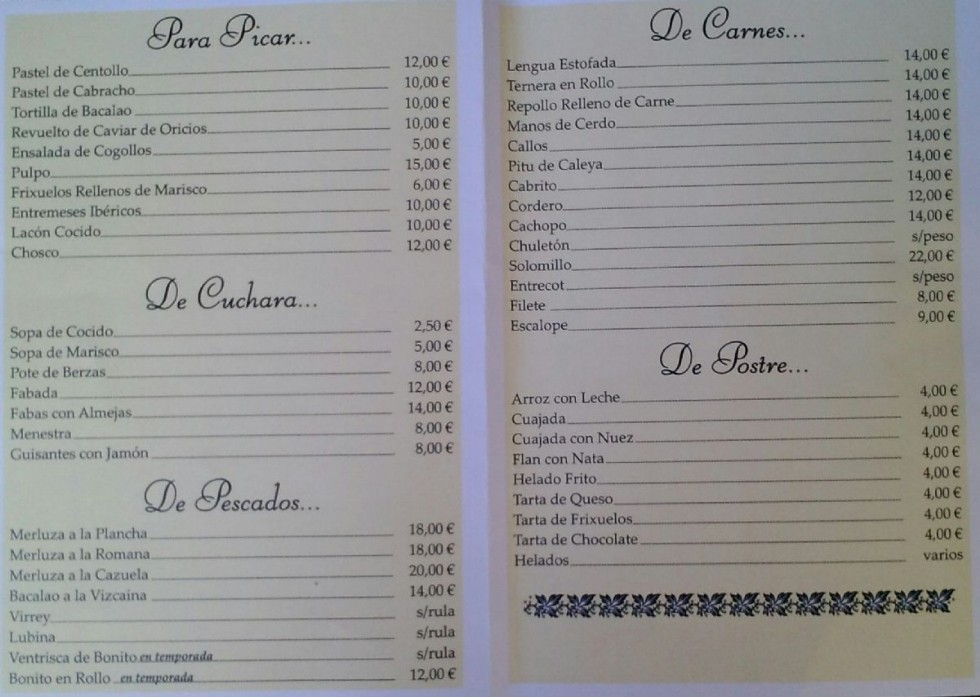 Para Picar...
Pastel de Centollo 12,00 €
Pastel de Cabracho 10,00 €
Tortilla de Bacalao 10,00 €
Revuelto de Caviar de Oricios 10,00 €
Ensalada de Cogollos 5,00 €
Pulpo 15,00 €
Frixuelos Rellenos de Marisco 6,00 €
Entremeses Ibéricos 10,00 €
Lacón Cocido 10,00 €
Chosco 12,00 €
De Cuchara...
Sopa de Cocido 2,50 €
Sopa de Marisco 5,00 €
Pote de Berzas 8,00 €
Fabada 12,00 €
Fabas con Almejas 14,00 €
Menestra 8,00 €
Guisantes con Jamón 8,00 €
De Pescados...
Merluza a la Plancha 18,00 €
Merluza a la Romana 18,00 €
Merluza a la Cazuela 20,00 €
Bacalao a la Vizcaina 14,00 €
Virrey s/rula
Lubina s/rula
Ventrisca de Bonito en temporada s/rula
Bonito en Rollo en temporada 12,00 €
De Carnes...
Lengua Estofada 14,00 €
Ternera en Rollo 14,00 €
Repollo Relleno de Carne 14,00 €
Manos de Cerdo 14,00 €
Callos 14,00 €
Pitu de Caleya 14,00 €
Cabrito 14,00 €
Cordero 12,00 €
Cachopo 14,00 €
Chuletón s/peso
Solomillo 22,00 €
Entrecot s/peso
Filete 8,00 €
Escalope 9,00 €
De Postre...
Arroz con Leche 4,00 €
Cuajada 4,00 €
Cuajada con Nuez 4,00 €
Flan con Nata 4,00 €
Helado Frito 4,00 €
Tarta de Queso 4,00 €
Tarta de Frixuelos 4,00 €
Tarta de Chocolate 4,00 €
Helados varios